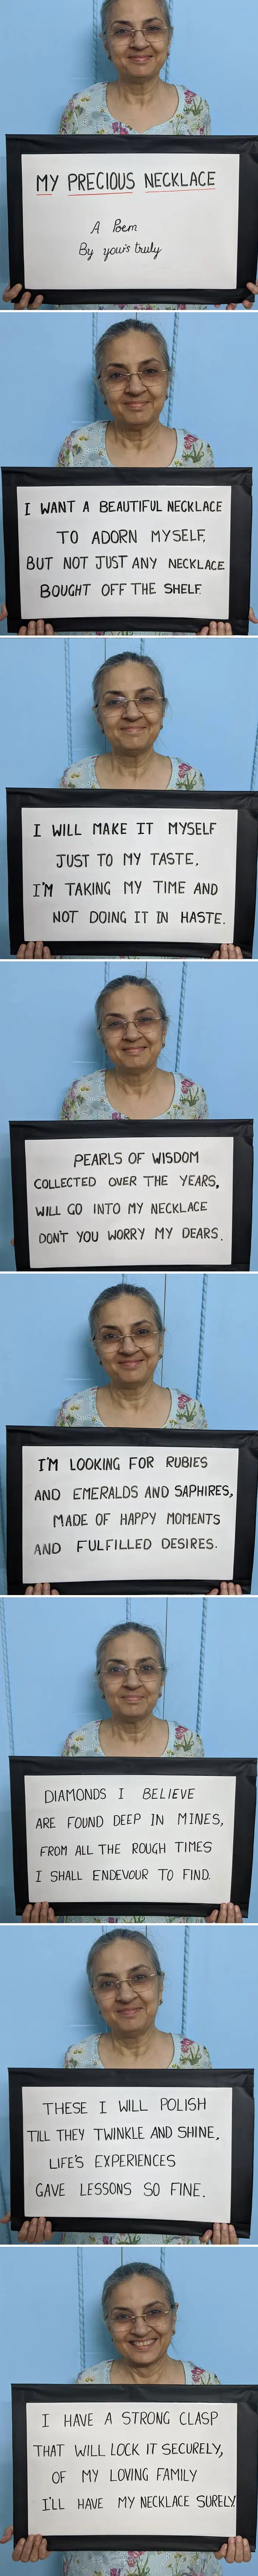 MY PRECIOUS NECKLACE
A Poem
By yours truly
I WANT A BEAUTIFUL NECKLACE
TO ADORN MYSELF,
BUT NOT JUST ANY NECKLACE
BOUGHT OFF THE SHELF.
I WILL MAKE IT MYSELF
JUST TO MY TASTE,
I'M TAKING MY TIME AND
NOT DOING IT IN HASTE.
PEARLS OF WISDOM
COLLECTED OVER THE YEARS,
WILL GO INTO MY NECKLACE
DON'T YOU WORRY MY DEARS.
I'M LOOKING FOR RUBIES
AND EMERALDS AND SAPHIRES,
MADE OF HAPPY MOMENTS
AND FULFILLED DESIRES.
DIAMONDS I BELIEVE
ARE FOUND DEEP IN MINES,
FROM ALL THE ROUGH TIMES
I SHALL ENDEVOUR TO FIND.
THESE I WILL POLISH
TILL THEY TWINKLE AND SHINE,
LIFE'S EXPERIENCES
GAVE LESSONS SO FINE.
I HAVE A STRONG CLASP
THAT WILL LOCK IT SECURELY,
OF MY LOVING FAMILY
I'LL HAVE MY NECKLACE SURELY.